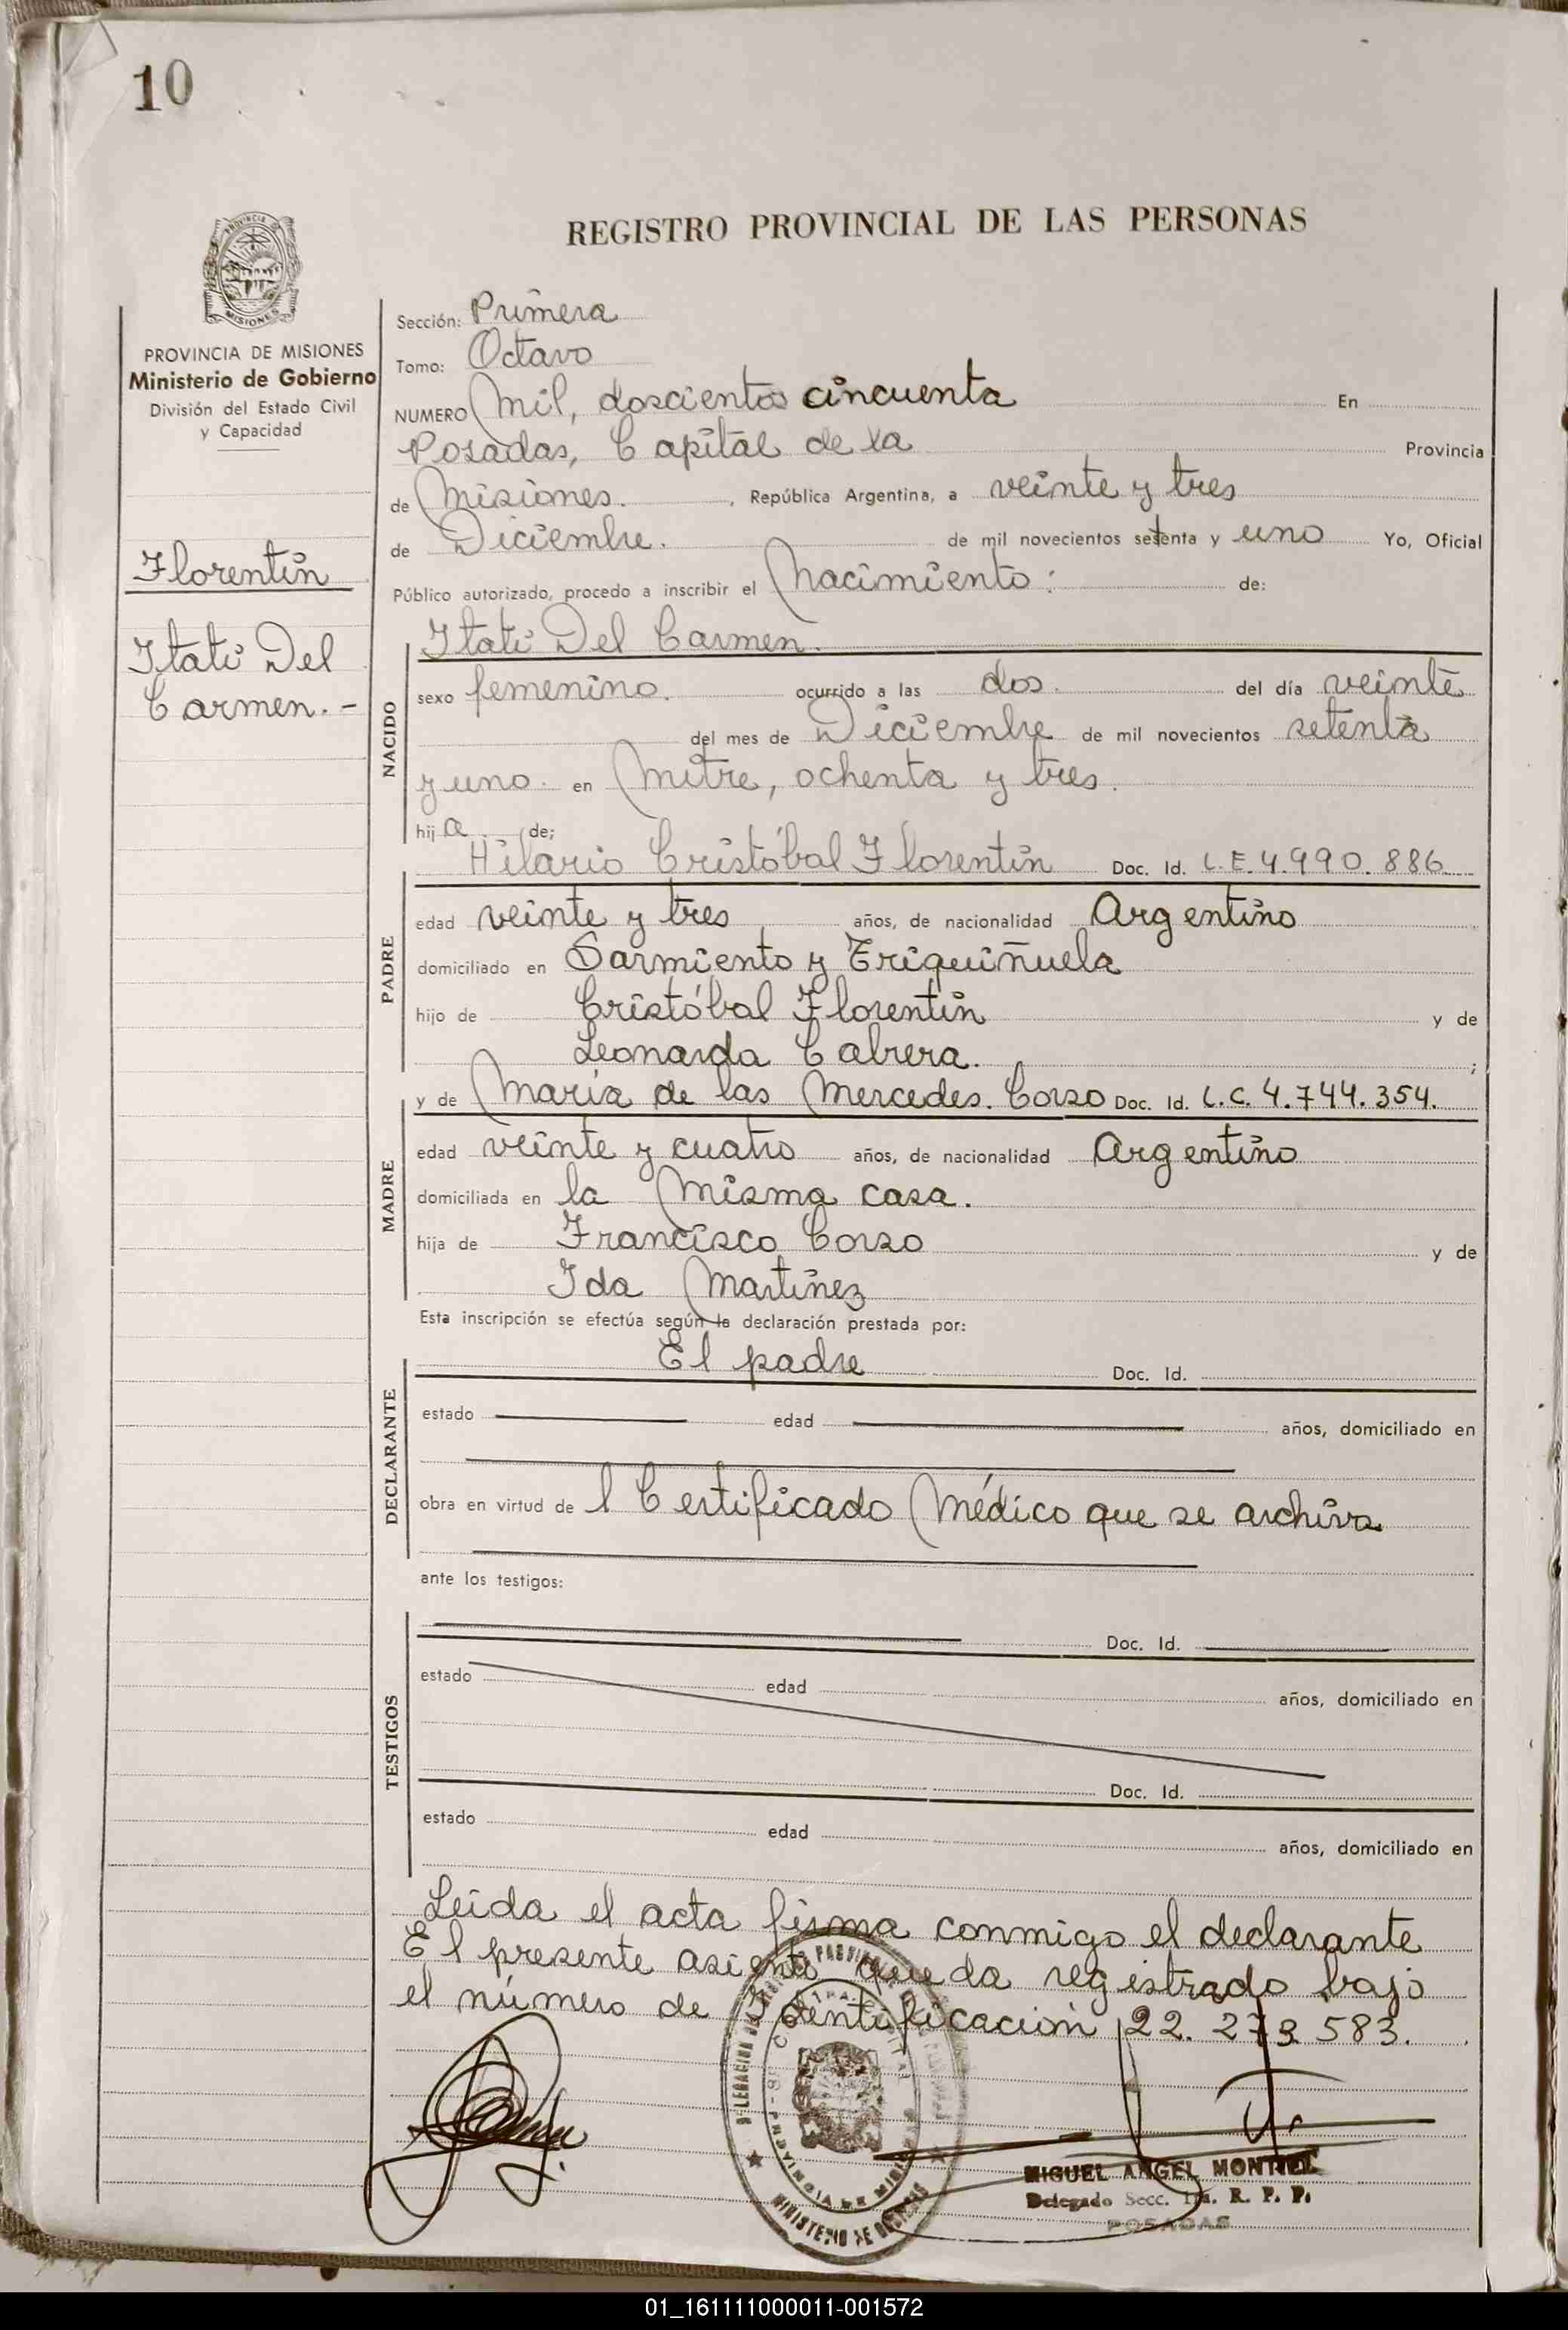 10
REGISTRO PROVINCIAL DE LAS PERSONAS
PROVINCIA DE MISIONES
Ministerio de Gobierno
División del Estado Civil
y Capacidad
Florentín
Itatí Del
Carmen.-
Sección: Primera
Tomo: Octavo
NUMERO Mil, doscientos cincuenta En
Posadas, Capital de la Provincia
de Misiones. , República Argentina, a veinte y tres
de Diciembre. de mil novecientos setenta y uno Yo, Oficial
Público autorizado, procedo a inscribir el Nacimiento: de:
Itatí Del Carmen.
NACIDO
sexo femenino. ocurrido a las dos. del día veinte
del mes de Diciembre de mil novecientos setenta
y uno. en Mitre, ochenta y tres.
hija de;
Hilario Cristóbal Florentín Doc. Id. L.E. 4.990.886
PADRE
edad veinte y tres años, de nacionalidad Argentino
domiciliado en Sarmiento y Triquiñuela
hijo de Cristóbal Florentín y de
Leonarda Cabrera. ;
y de María de las Mercedes. Corso Doc. Id. L.C. 4.744.354.
MADRE
edad veinte y cuatro años, de nacionalidad Argentino
domiciliada en la Misma casa.
hija de Francisco Corso y de
Ida Martínez
Esta inscripción se efectúa según la declaración prestada por:
El padre Doc. Id.
DECLARANTE
estado edad años, domiciliado en
obra en virtud de l Certificado Médico que se archiva
ante los testigos:
Doc. Id.
TESTIGOS
estado edad años, domiciliado en
Doc. Id.
estado edad años, domiciliado en
Leída el acta firma conmigo el declarante
El presente asiento queda registrado bajo
el número de Identificación 22. 583.
MIGUEL ANGEL MONTIEL
Delegado Secc. 1a. R. P. P.
POSADAS
01_161111000011-001572